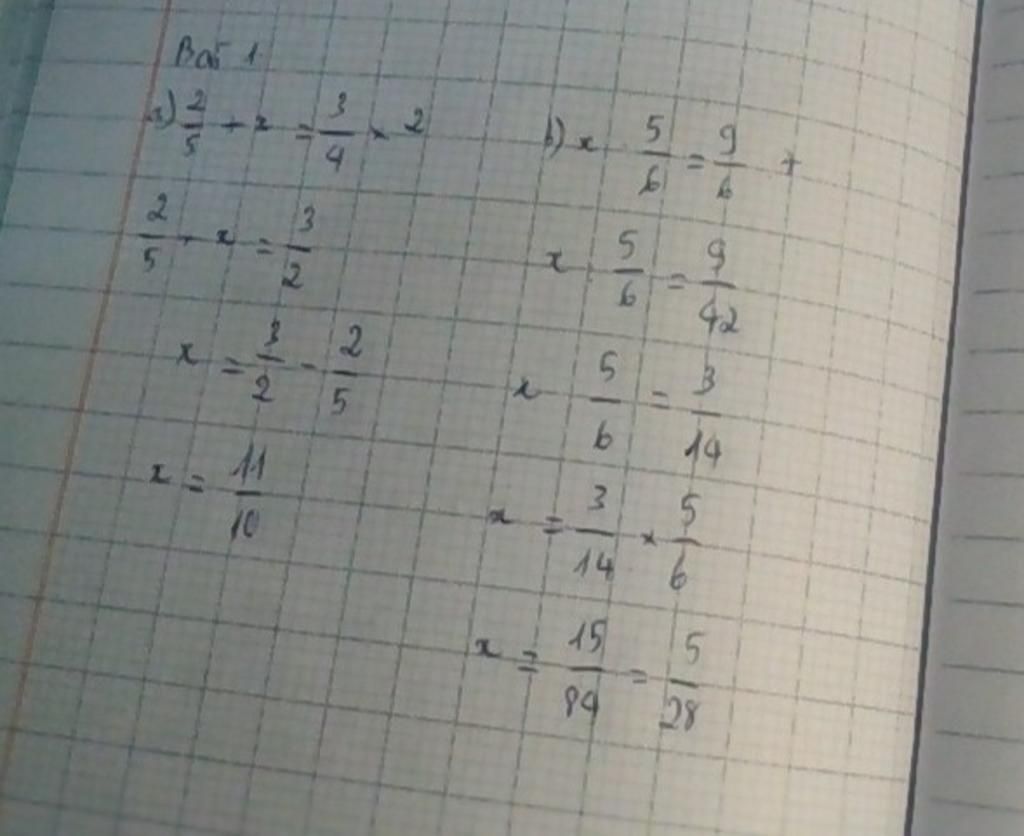 Bài 1
a) 2/5 + x = 3/4 × 2
2/5 + x = 3/2
x = 3/2 - 2/5
x = 11/10
b) x : 5/6 = 9/6 : 7
x : 5/6 = 9/42
x : 5/6 = 3/14
x = 3/14 × 5/6
x = 15/84 = 5/28